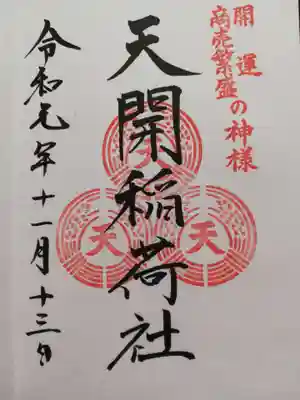 開運
商売繁盛の神様
天開稲荷社
天
天
天
令和元年十一月十三日